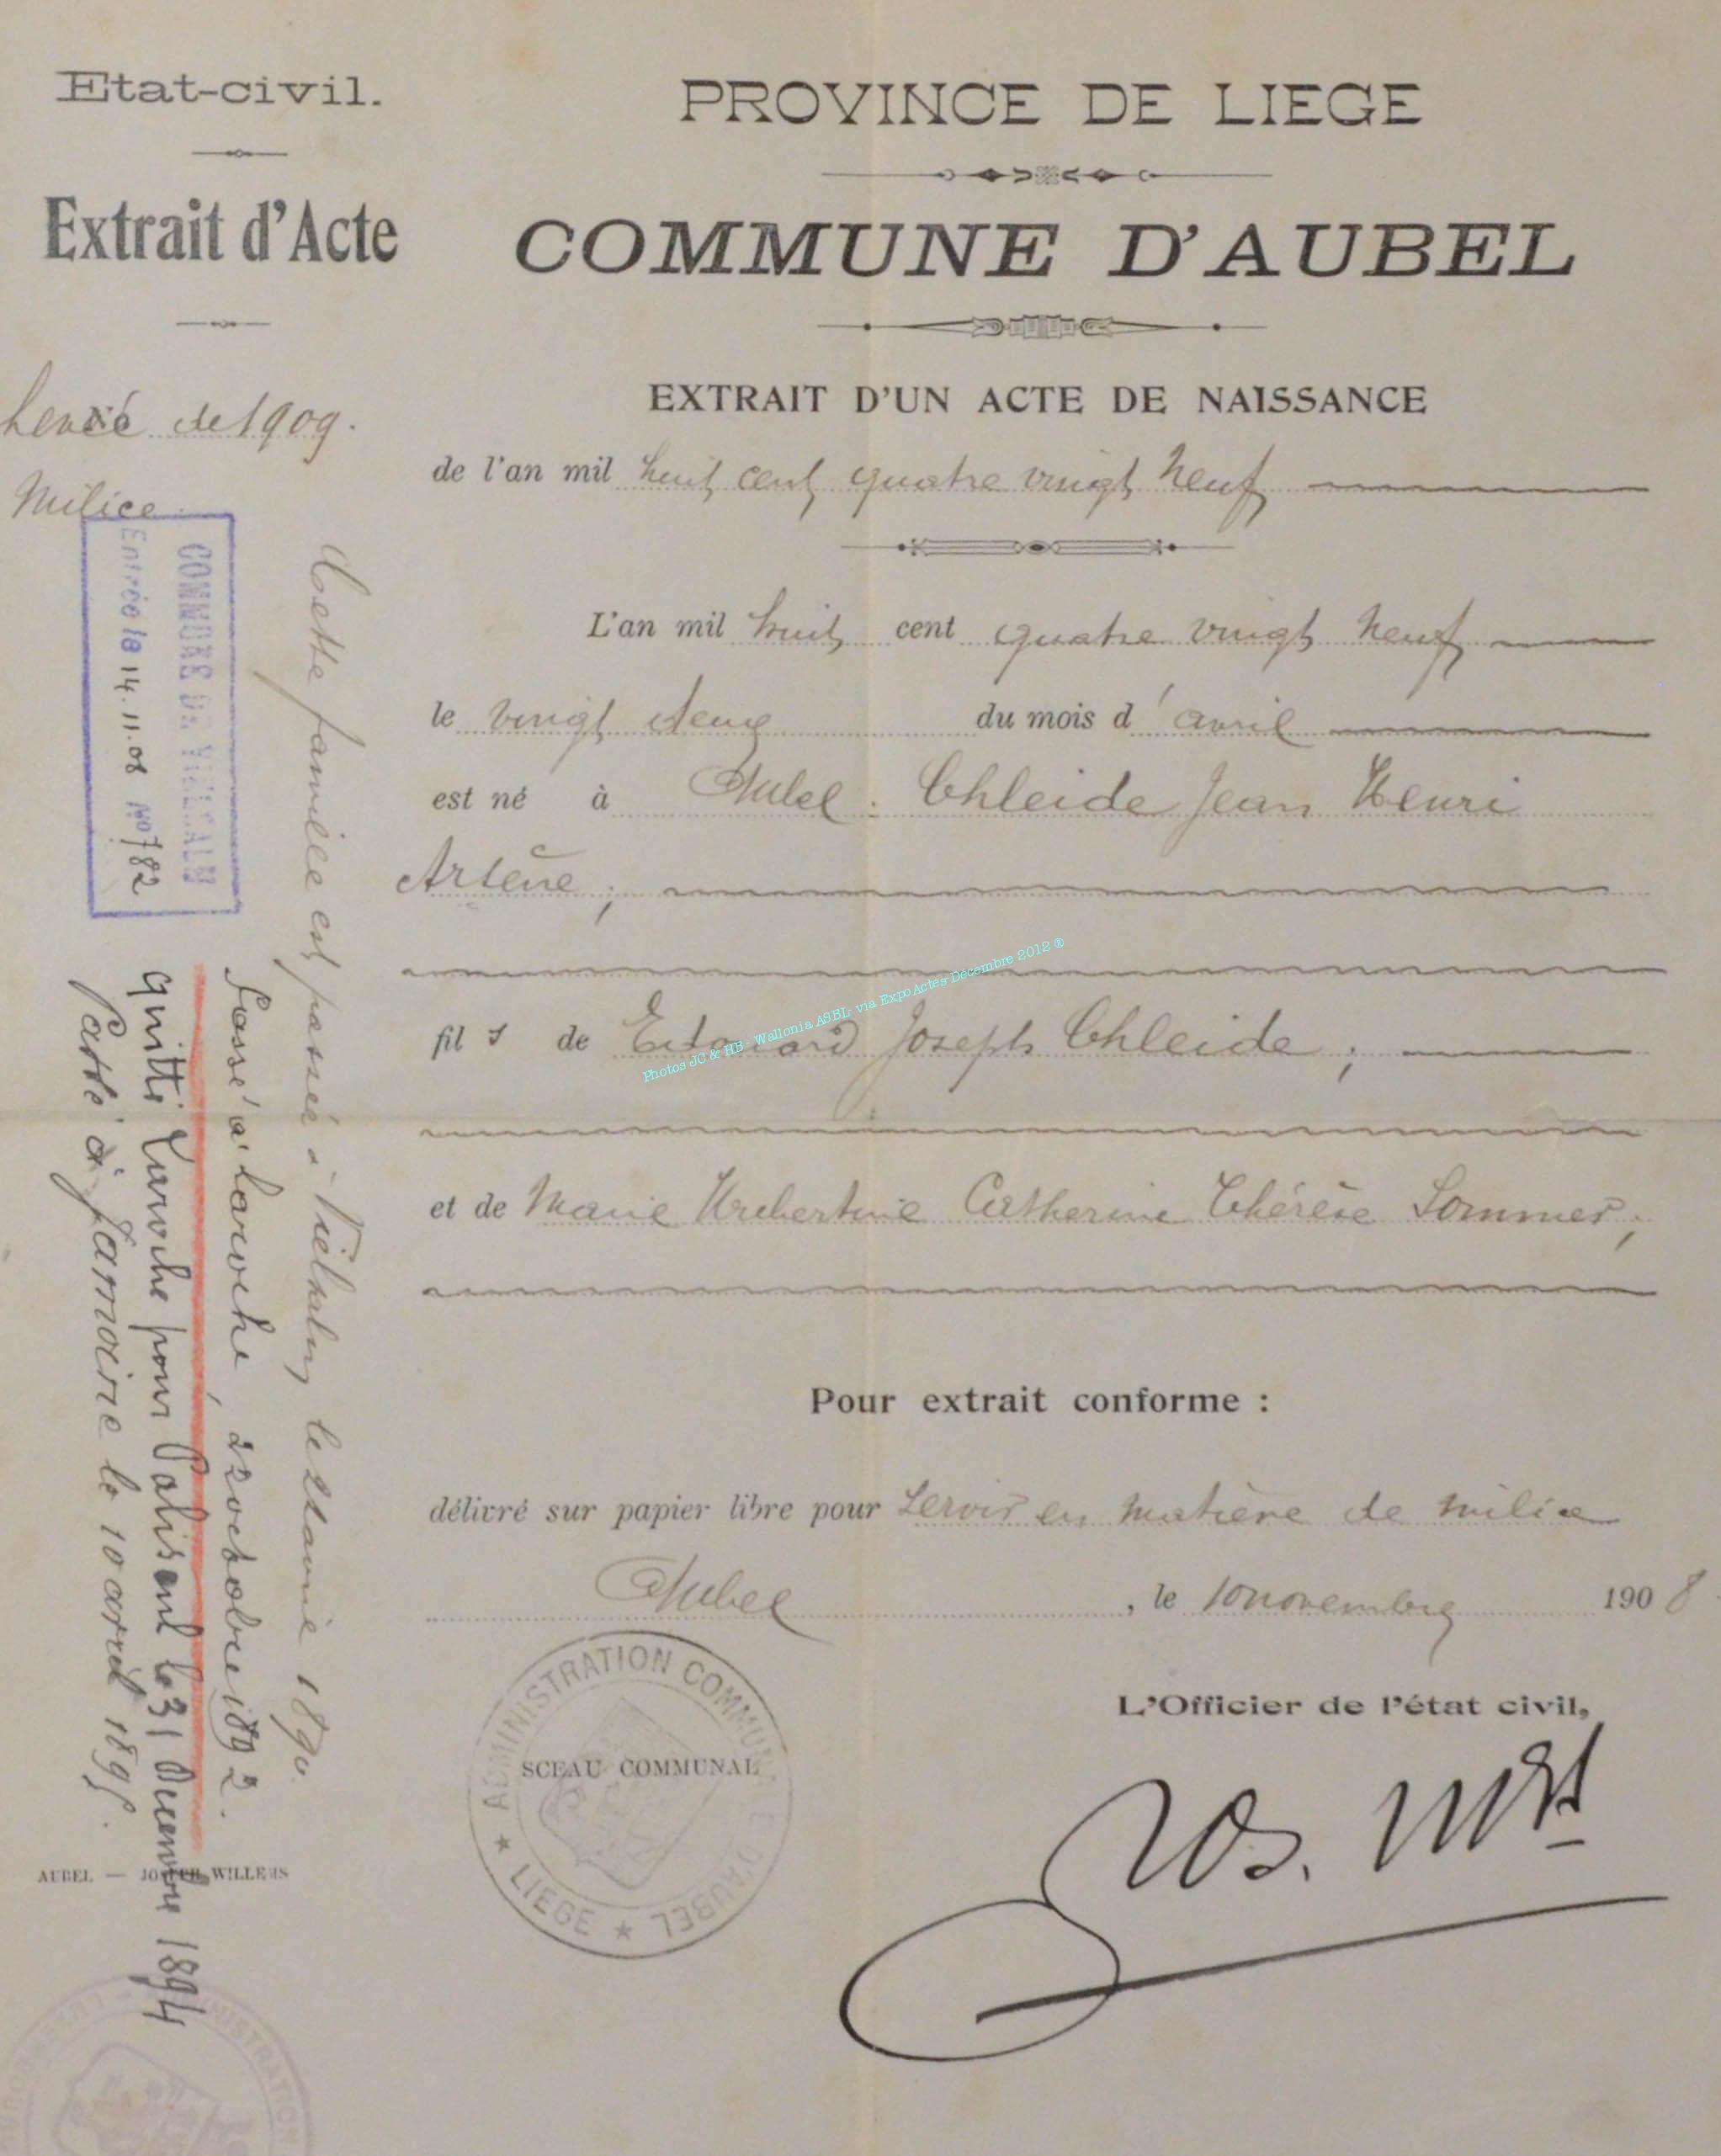 Etat-civil.
Extrait d'Acte
de 1909.
Milice
PROVINCE DE LIEGE
COMMUNE D'AUBEL
EXTRAIT D'UN ACTE DE NAISSANCE
de l'an mil huit cent quatre vingt neuf
L'an mil huit cent quatre vingt neuf
le vingt deux du mois d'avril
est né à Aubel : Chleide Jean Henri
Arsène ;
fils de Edouard Joseph Chleide ;
et de Marie Hubertine Catherine Thérèse Sommer ;
Pour extrait conforme :
délivré sur papier libre pour servir en matière de milice
Aubel, le 10 novembre 1908
L'Officier de l'état civil,
SCEAU COMMUNAL
★ ADMINISTRATION COMMUNALE D'AUBEL ★ LIEGE
AUBEL — JOSEPH WILLEMS
COMMUNE DE VIELSALM
Entrée le 14.11.08 No 782
Cette famille est passée à Vielsalm le 1890.
Passé à Laroche, 22 octobre 1892.
quitté Laroche pour Paliseul le 31 Décembre 1894
Passé à Jamoigne le 10 avril 189
Photos JC & HB - Wallonia ASBL via ExpoActes Décembre 2012 ®